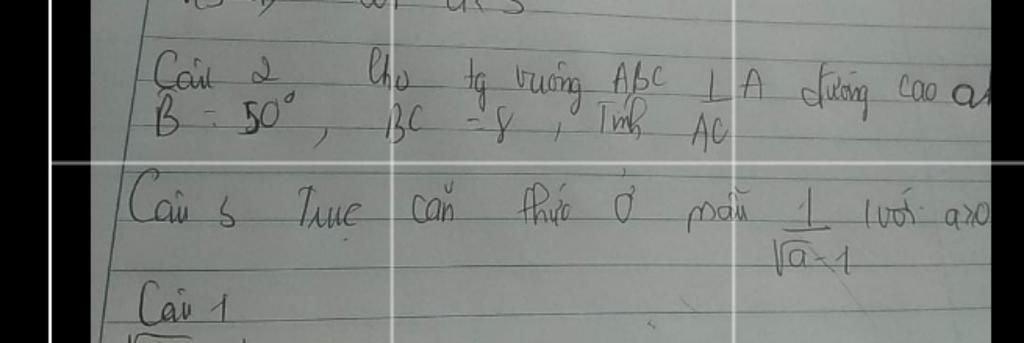 Câu 2 Cho tg vuông ABC ⊥ A đường cao a
B = 50°, BC = 8, Tính AC
Câu 5 Trục căn thức ở mẫu 1/(√a-1) (với a>0
Câu 1